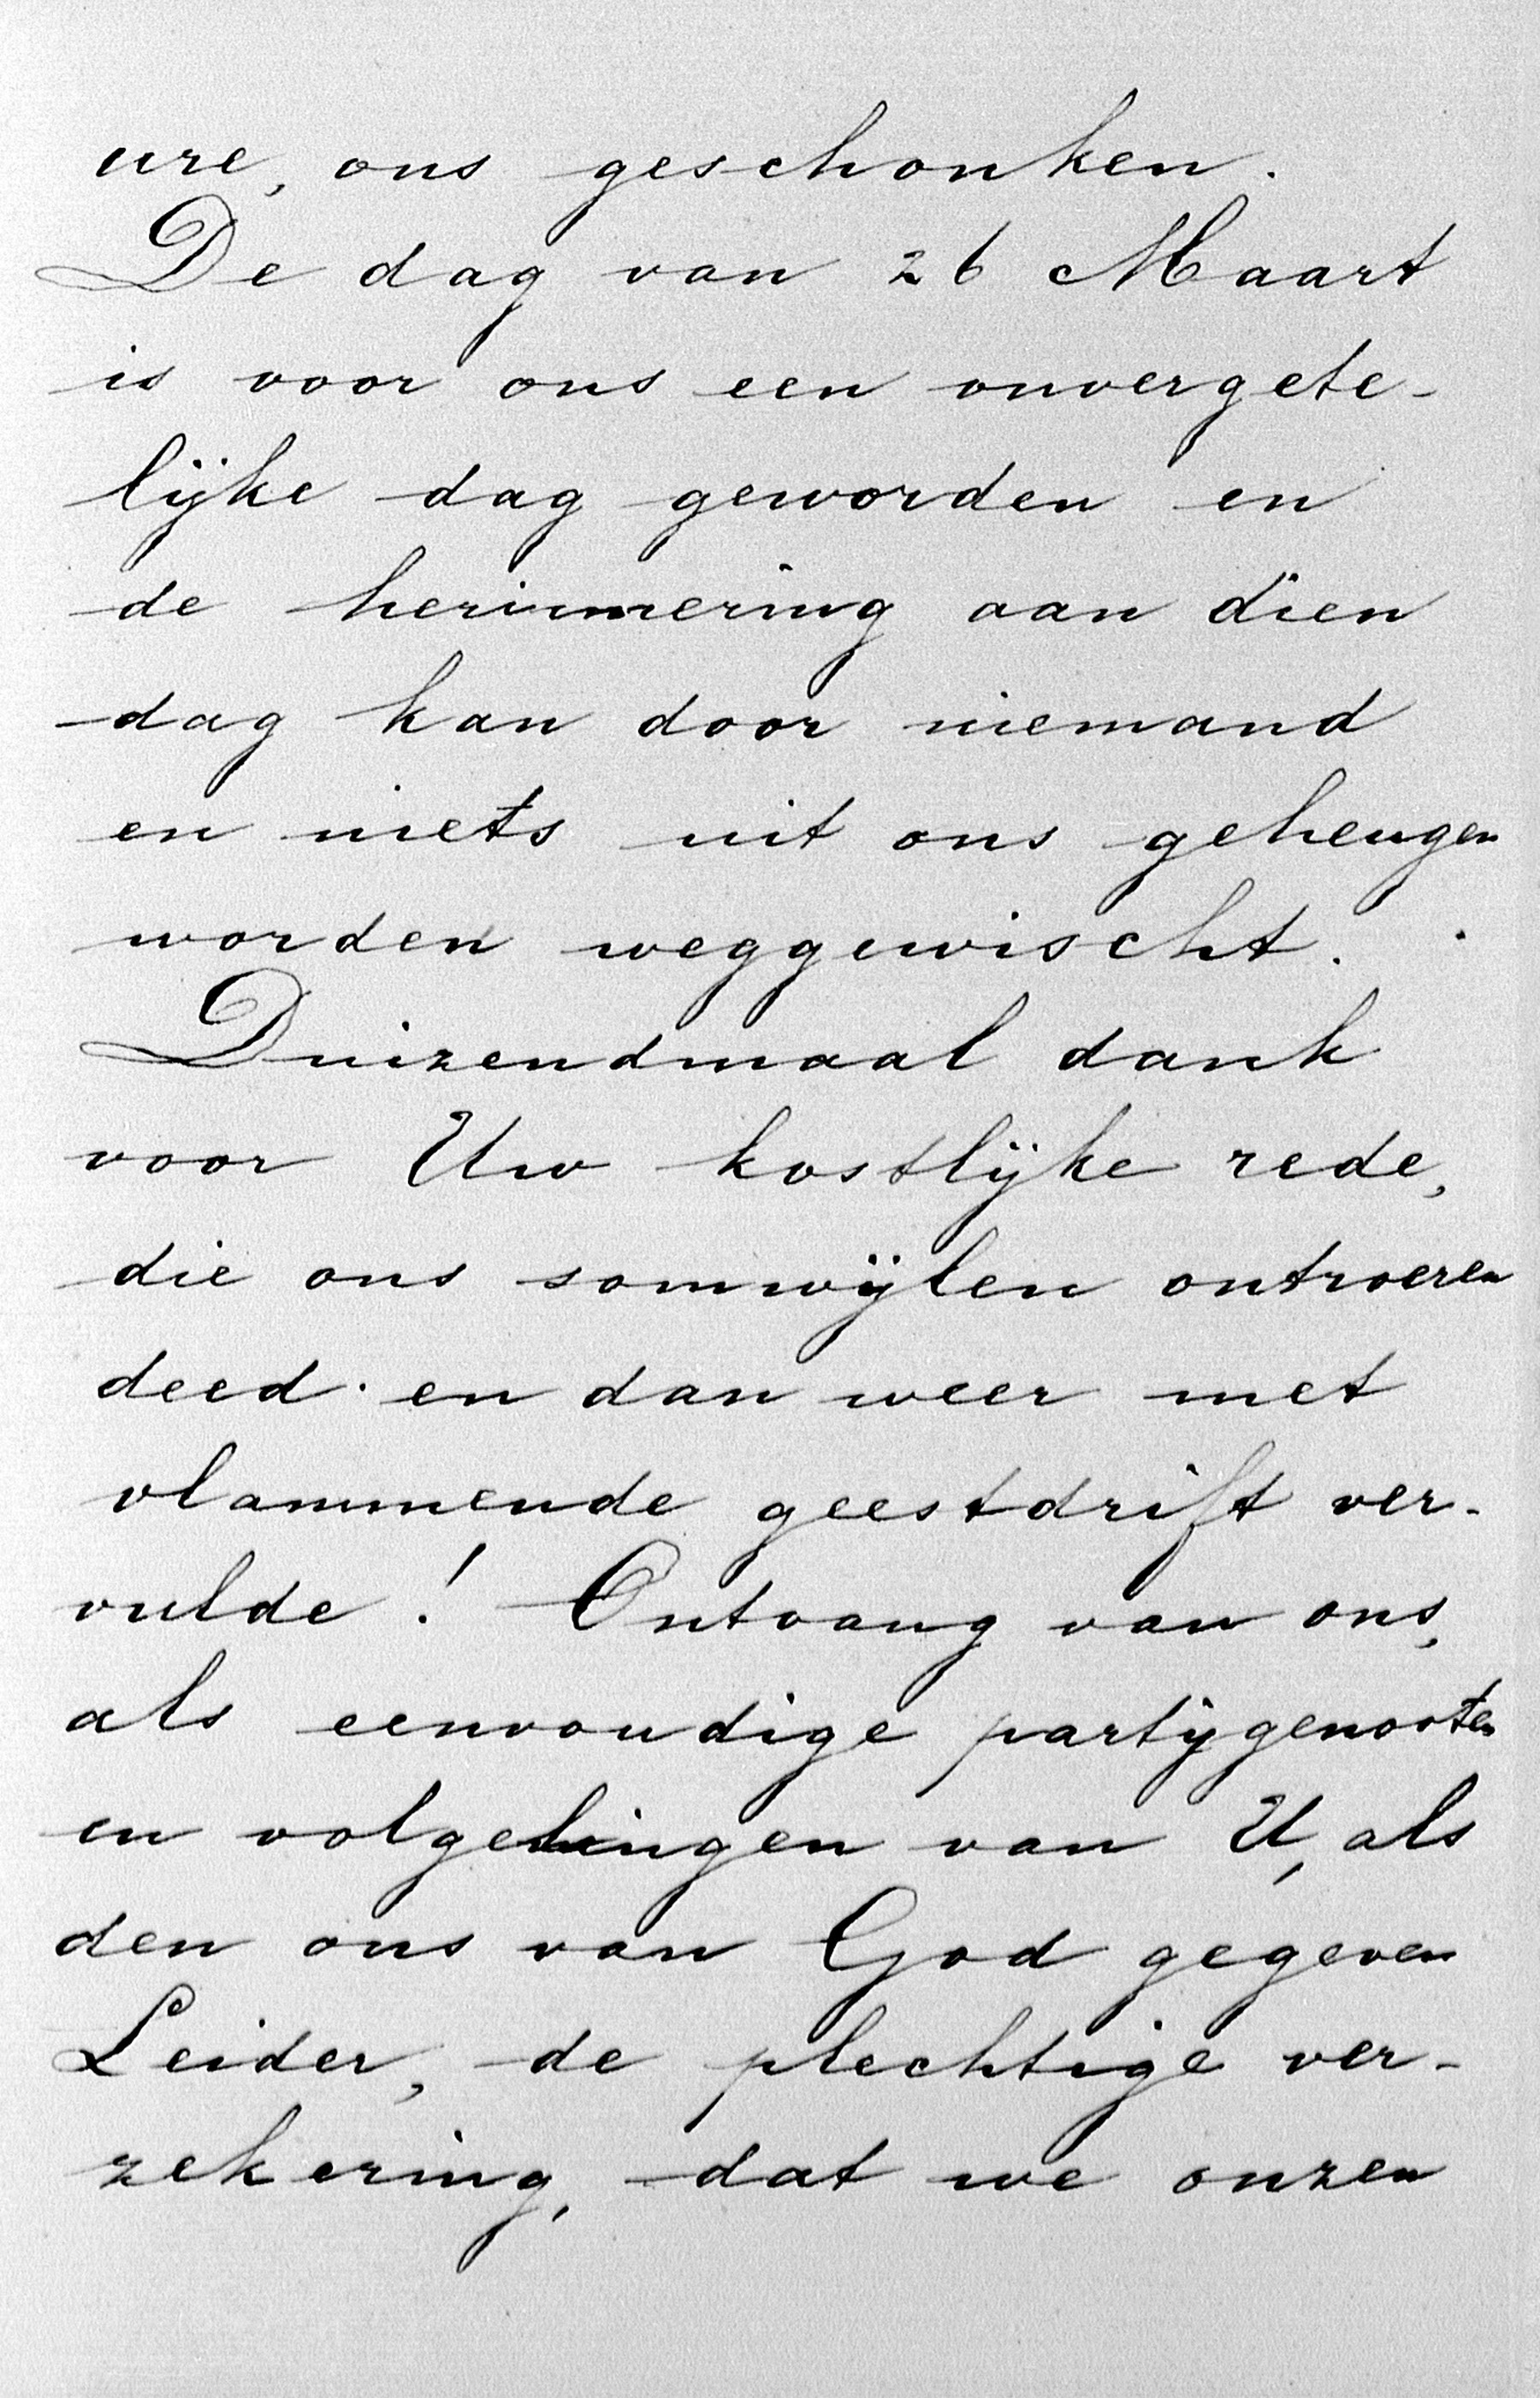 ure, ons geschonken.
De dag van 26 Maart
is voor ons een onvergete-
lijke dag geworden en
de herinnering aan dien
dag kan door niemand
en niets uit ons geheugen
worden weggewischt.
Duizendmaal dank
voor Uw kostlijke rede,
die ons somwijlen ontroeren
deed en dan weer met
vlammende geestdrift ver-
vulde! Ontvang van ons,
als eenvoudige partijgenooten
en volgelingen van U, als
den ons van God gegeven
Leider, de plechtige ver-
zekering, dat we onzen